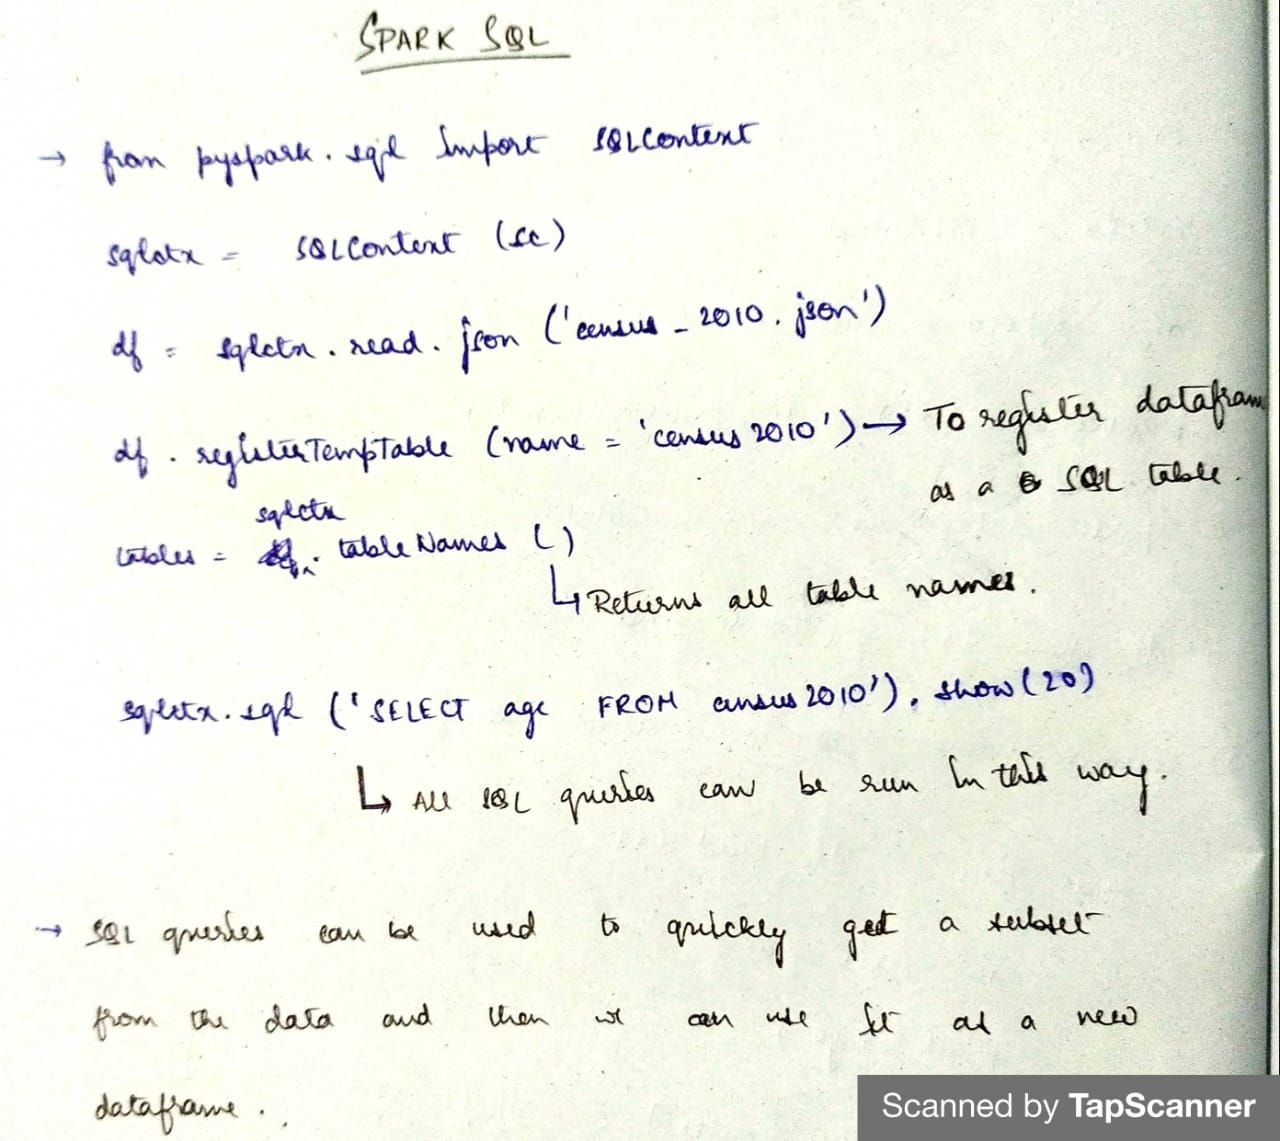 SPARK SQL
→ from pyspark.sql import SQLContext
sqlctx = SQLContext (sc)
df = sqlctx.read.json ('census_2010.json')
df.registerTempTable (name = 'census2010') → To register datafram
as a SQL table.
sqlctx
tables = . tableNames ()
↳ Returns all table names.
sqlctx.sql ('SELECT age FROM census2010').show(20)
↳ All SQL queries can be run in this way.
→ SQL queries can be used to quickly get a subset
from the data and then we can use it as a new
dataframe.
Scanned by TapScanner